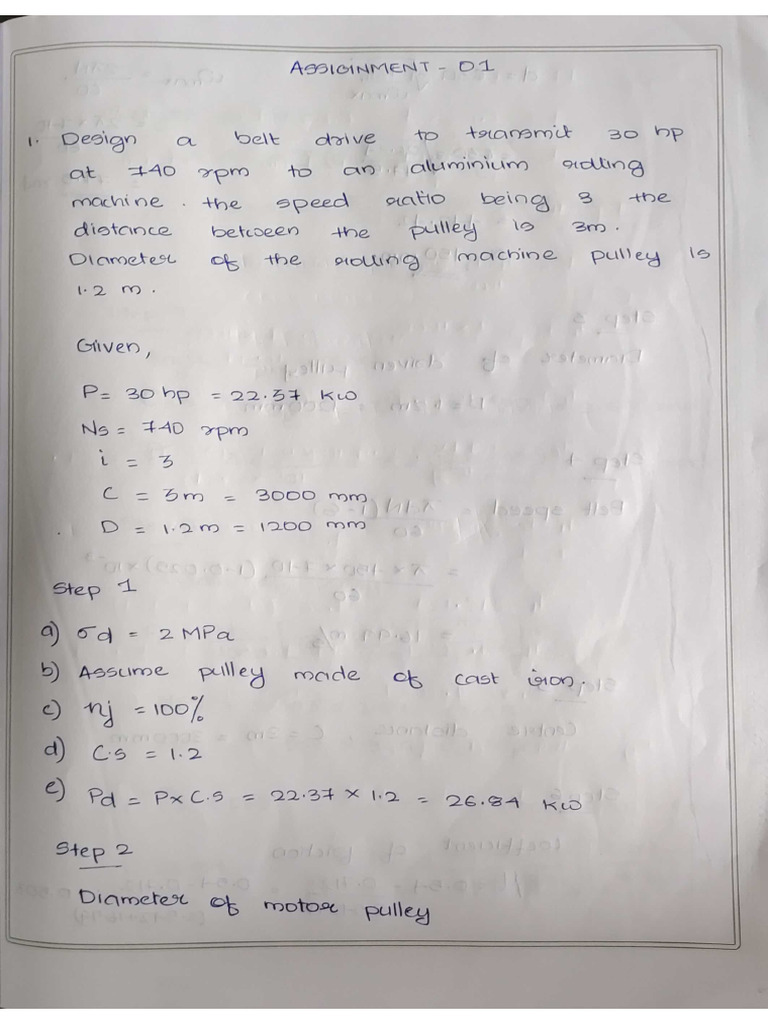 ASSIGINMENT - 01
1. Design a belt drive to transmit 30 hp
at 740 rpm to an aluminium rolling
machine. the speed ratio being 3 the
distance between the pulley is 3m.
Diameter of the rolling machine pulley is
1.2 m.
Given,
P = 30 hp = 22.37 KW
Ns = 740 rpm
i = 3
C = 3m = 3000 mm
D = 1.2m = 1200 mm
Step 1
a) σd = 2 MPa
b) Assume pulley made of cast iron.
c) nj = 100%
d) C.S = 1.2
e) Pd = P x C.S = 22.37 x 1.2 = 26.84 KW
Step 2
Diameter of motor pulley